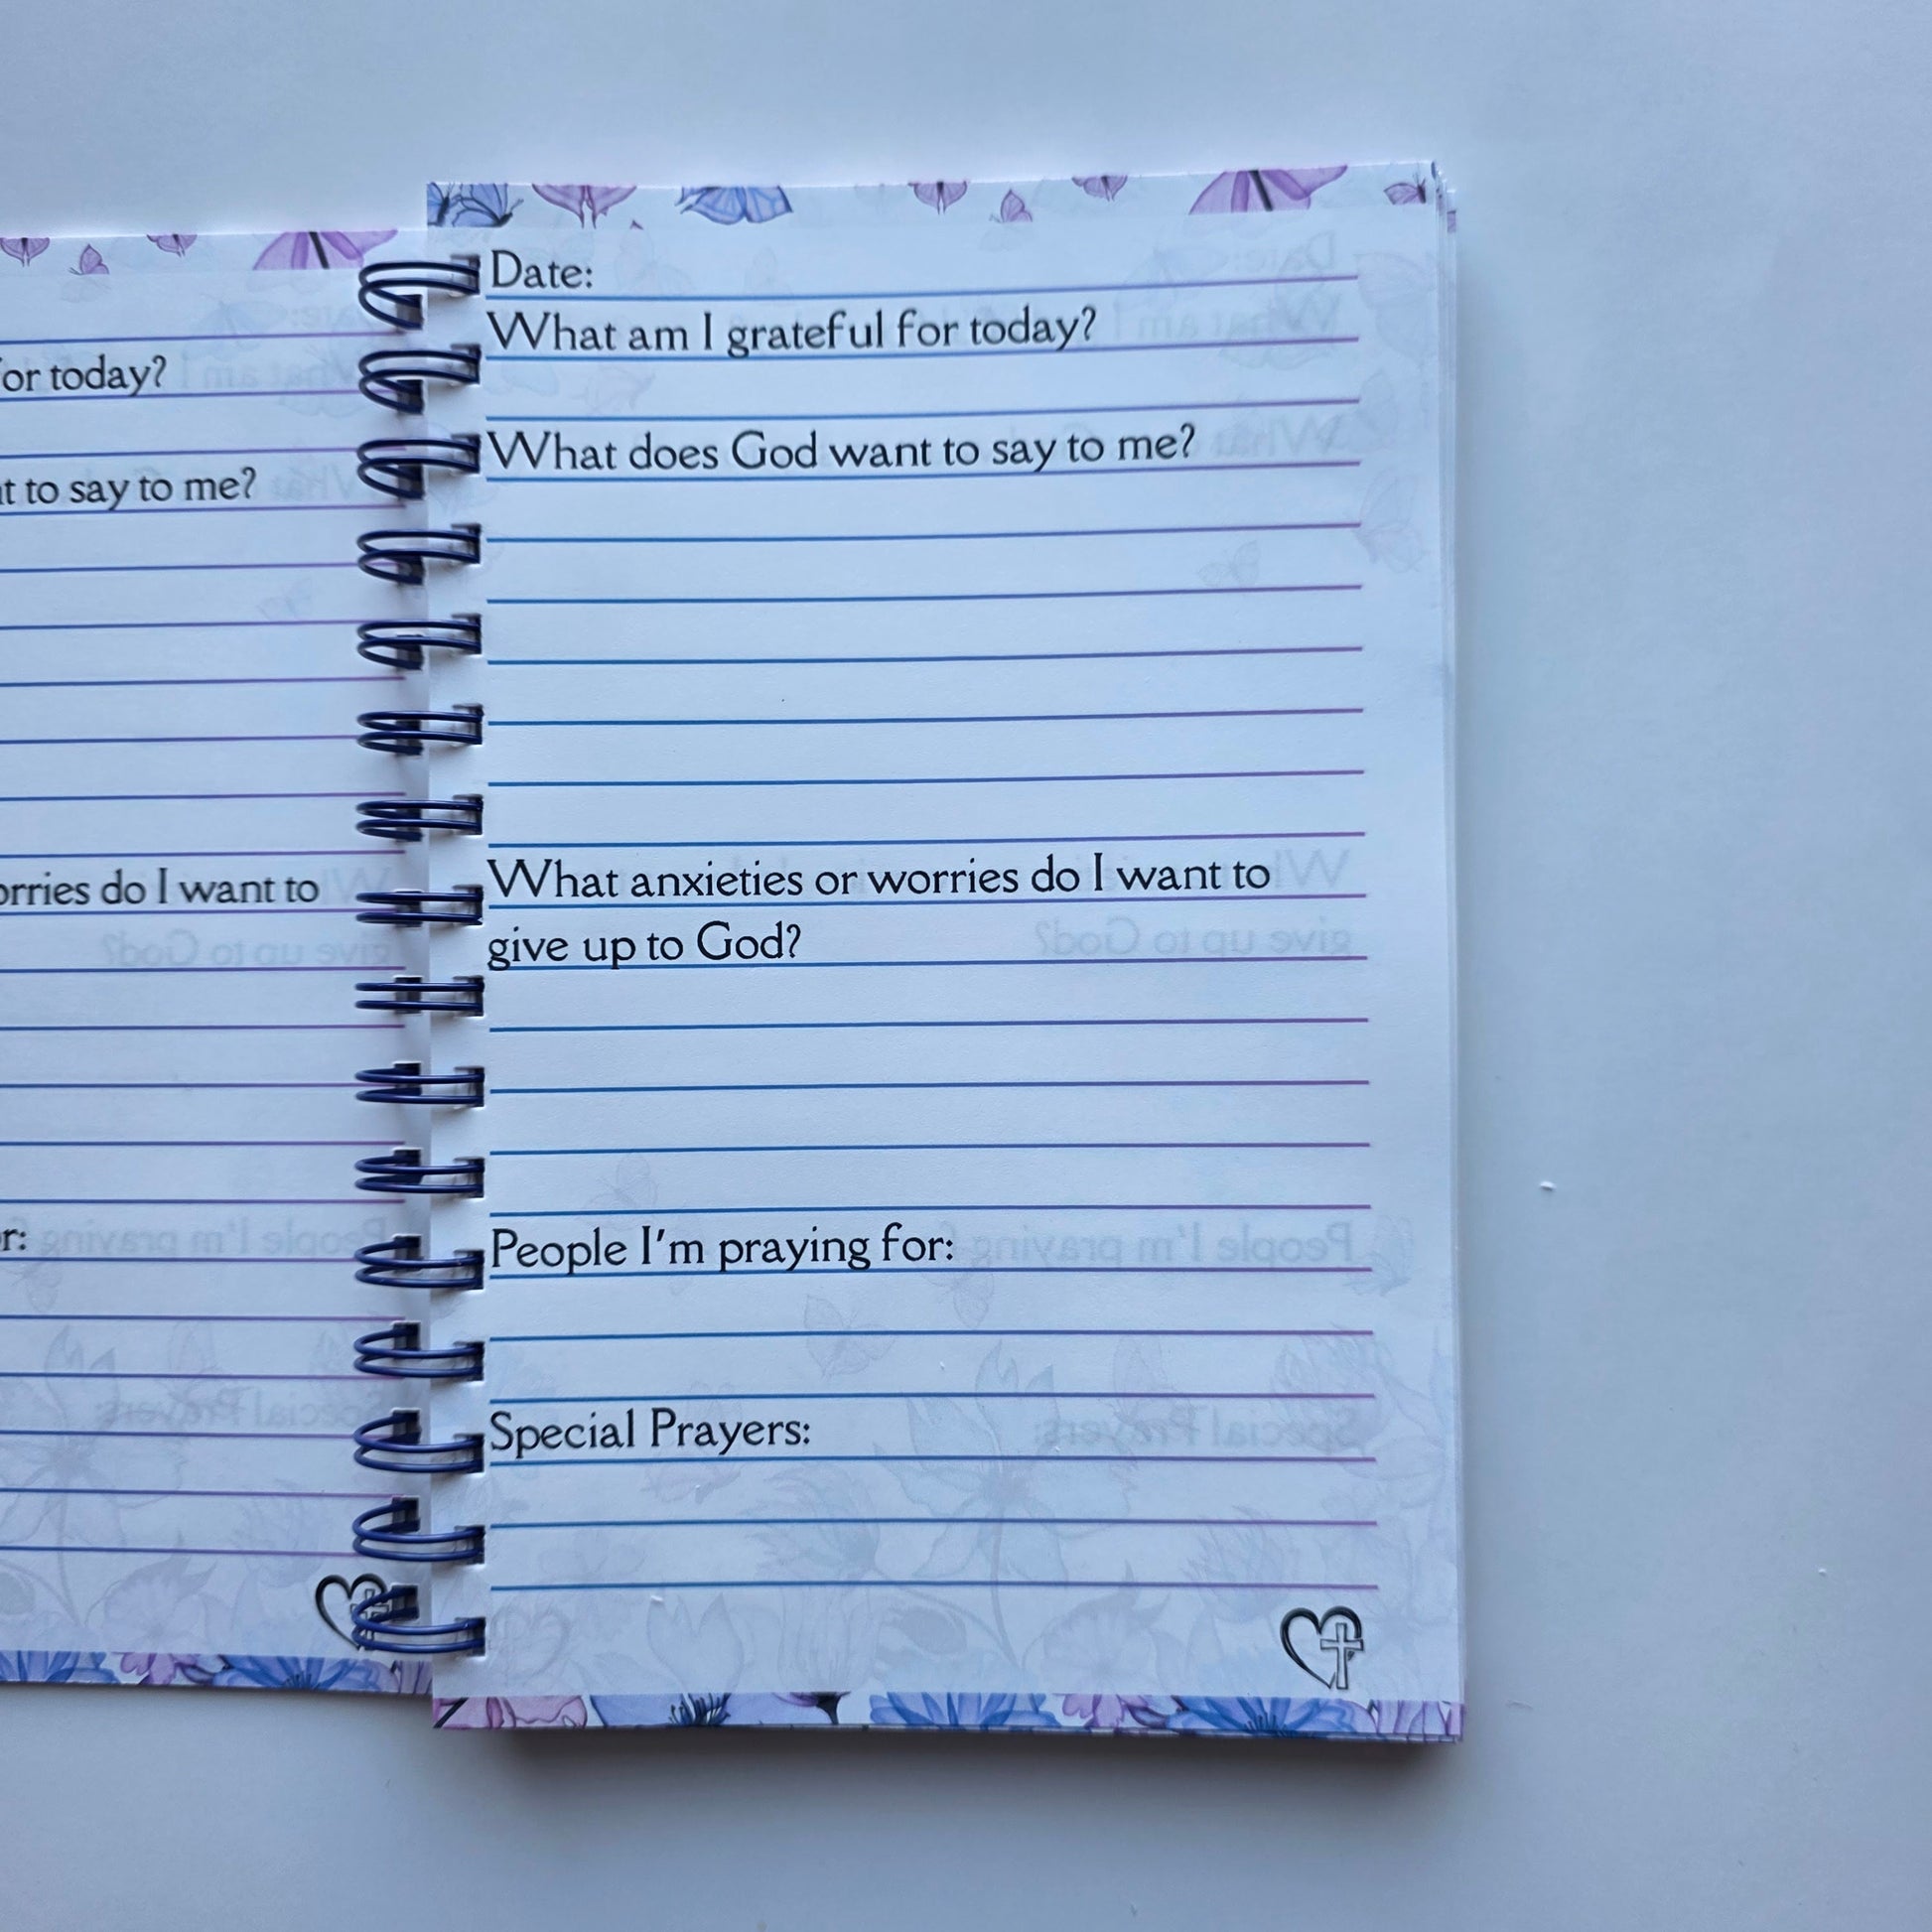 or today?
t to say to me?
orries do I want to
r:
Date:
What am I grateful for today?
What does God want to say to me?
What anxieties or worries do I want to
give up to God?
People I'm praying for:
Special Prayers: